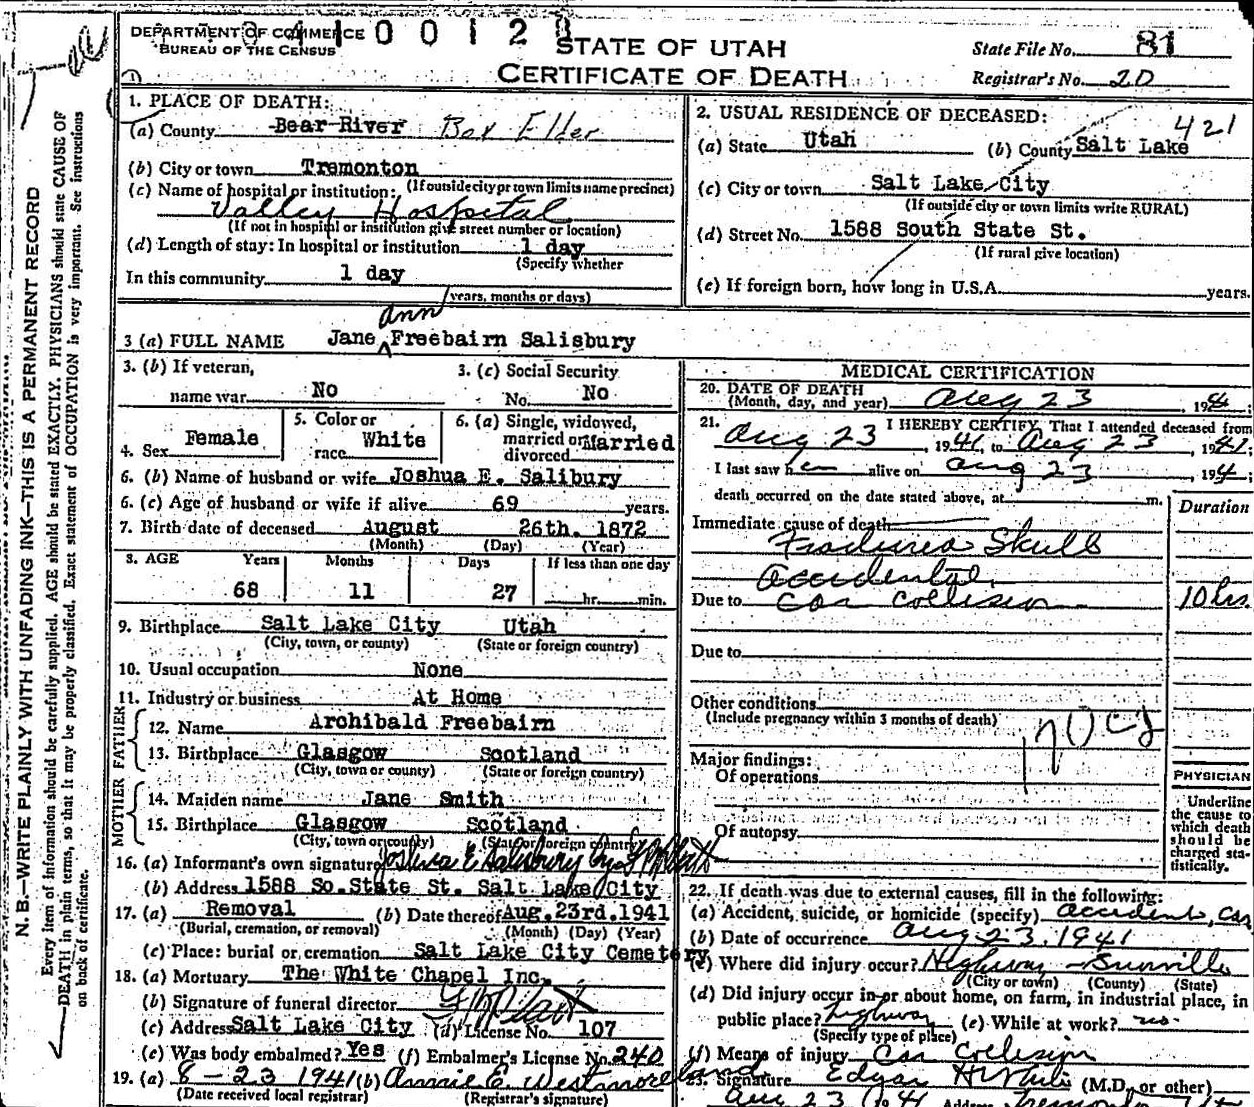 DEPARTMENT OF COMMERCE
BUREAU OF THE CENSUS
STATE OF UTAH
CERTIFICATE OF DEATH
State File No. 81
Registrar's No. 20
N. B.—WRITE PLAINLY WITH UNFADING INK—THIS IS A PERMANENT RECORD
Every item of information should be carefully supplied. AGE should be stated EXACTLY. PHYSICIANS should state CAUSE OF
DEATH in plain terms, so that it may be properly classified. Exact statement of OCCUPATION is very important. See instructions
on back of certificate.
1. PLACE OF DEATH:
(a) County Bear River Box Elder
(b) City or town Tremonton
(If outside city or town limits name precinct)
(c) Name of hospital or institution:
Valley Hospital
(If not in hospital or institution give street number or location)
(d) Length of stay: In hospital or institution 1 day
(Specify whether
In this community 1 day
years, months or days)
2. USUAL RESIDENCE OF DECEASED:
421
(a) State Utah (b) County Salt Lake
(c) City or town Salt Lake City
(If outside city or town limits write RURAL)
(d) Street No. 1588 South State St.
(If rural give location)
(e) If foreign born, how long in U.S.A. years.
3 (a) FULL NAME Jane Ann Freebairn Salisbury
3. (b) If veteran, name war No
3. (c) Social Security No. No
4. Sex Female
5. Color or race White
6. (a) Single, widowed, married or divorced Married
6. (b) Name of husband or wife Joshua E. Salibury
6. (c) Age of husband or wife if alive 69 years.
7. Birth date of deceased August 26th. 1872
(Month) (Day) (Year)
8. AGE Years Months Days If less than one day
68 11 27 hr. min.
9. Birthplace Salt Lake City Utah
(City, town, or county) (State or foreign country)
10. Usual occupation None
11. Industry or business At Home
FATHER
12. Name Archibald Freebairn
13. Birthplace Glasgow Scotland
(City, town or county) (State or foreign country)
MOTHER
14. Maiden name Jane Smith
15. Birthplace Glasgow Scotland
(City, town or county) (State or foreign country)
16. (a) Informant's own signature Joshua E Salisbury by
(b) Address 1588 So. State St. Salt Lake City
17. (a) Removal (b) Date thereof Aug. 23rd, 1941
(Burial, cremation, or removal) (Month) (Day) (Year)
(c) Place: burial or cremation Salt Lake City Cemetery
18. (a) Mortuary The White Chapel Inc.
(b) Signature of funeral director
(c) Address Salt Lake City (d) License No. 107
(e) Was body embalmed? Yes (f) Embalmer's License No. 240
19. (a) 8-23 1941 (b) Annie E. Westmoreland
(Date received local registrar) (Registrar's signature)
MEDICAL CERTIFICATION
20. DATE OF DEATH
(Month, day, and year) Aug 23, 194
21. I HEREBY CERTIFY, That I attended deceased from
Aug 23, 1941, to Aug 23, 1941;
I last saw her alive on Aug 23, 194 ;
death occurred on the date stated above, at m.
Duration
Immediate cause of death
Fractured Skull
Accidental
Due to car collision 10 hrs
Due to
Other conditions
(Include pregnancy within 3 months of death)
Major findings:
Of operations
Of autopsy
PHYSICIAN
Underline
the cause to
which death
should be
charged sta-
tistically.
22. If death was due to external causes, fill in the following:
(a) Accident, suicide, or homicide (specify) accident, car
(b) Date of occurrence Aug 23, 1941
(c) Where did injury occur? Highway
(City or town) (County) (State)
(d) Did injury occur in or about home, on farm, in industrial place, in
public place? highway (e) While at work? no
(Specify type of place)
(f) Means of injury Car Collision
23. Signature Edgar H White (M.D., or other)
Aug 23 1941 Address Tremonton